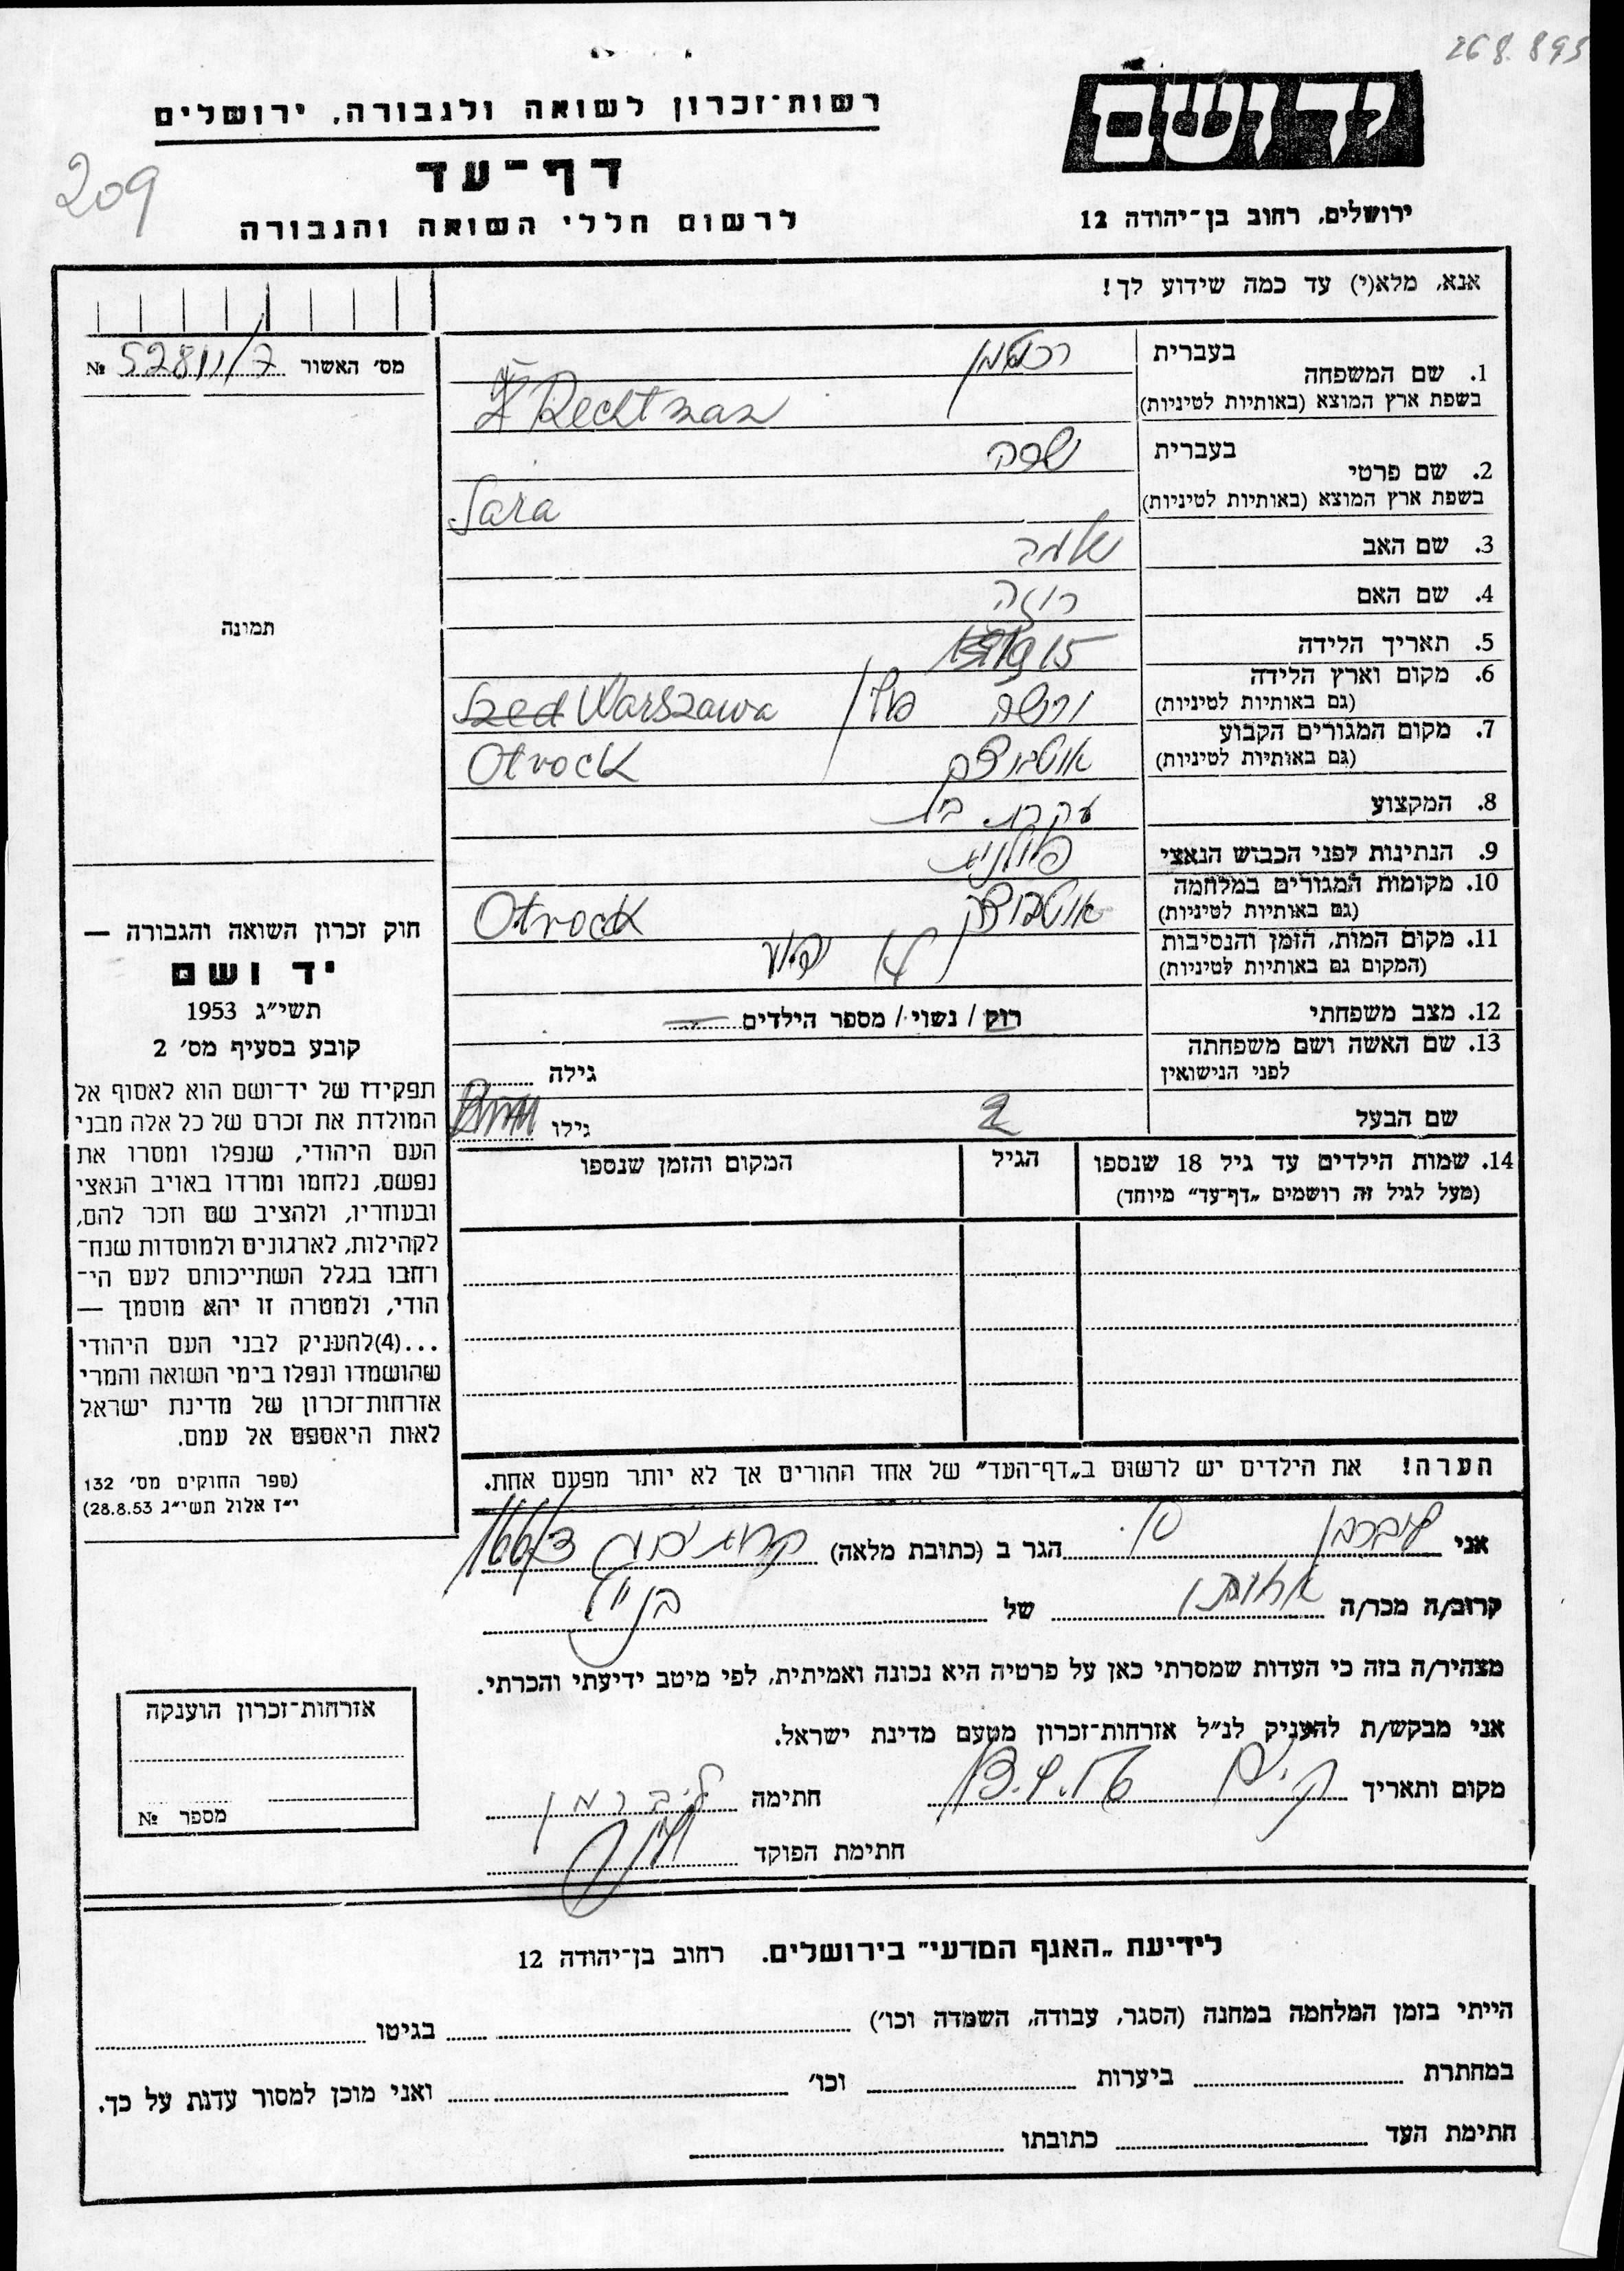 268.895
ידושם
רשות־זכרון לשואה ולגבורה, ירושלים
דף־עד
209
לרשום חללי השואה והגבורה
ירושלים, רחוב בן־יהודה 12
אנא, מלא(י) עד כמה שידוע לך!
מס׳ האשור 52811/7 №
1. שם המשפחה בעברית רכטמן
בשפת ארץ המוצא (באותיות לטיניות) Rechtman
2. שם פרטי בעברית שרה
בשפת ארץ המוצא (באותיות לטיניות) Sara
3. שם האב
4. שם האם רוזה
5. תאריך הלידה 1915
6. מקום וארץ הלידה ורשה פולין Warszawa
(גם באותיות לטיניות)
7. מקום המגורים הקבוע אוטבוצק Otvock
(גם באותיות לטיניות)
8. המקצוע עקרת בית
9. הנתינות לפני הכבוש הנאצי פולנית
10. מקומות המגורים במלחמה אוטבוצק Otvock
(גם באותיות לטיניות)
11. מקום המות, הזמן והנסיבות לא ידוע
(המקום גם באותיות לטיניות)
12. מצב משפחתי רוק / נשוי / מספר הילדים —
13. שם האשה ושם משפחתה גילה
לפני הנישואין
שם הבעל גילו
14. שמות הילדים עד גיל 18 שנספו הגיל המקום והזמן שנספו
(מעל לגיל זה רושמים „דף־עד״ מיוחד)
הערה! את הילדים יש לרשום ב„דף־העד״ של אחד ההורים אך לא יותר מפעם אחת.
תמונה
חוק זכרון השואה והגבורה —
יד ושם
תשי״ג 1953
קובע בסעיף מס׳ 2
תפקידו של יד־ושם הוא לאסוף אל
המולדת את זכרם של כל אלה מבני
העם היהודי, שנפלו ומסרו את
נפשם, נלחמו ומרדו באויב הנאצי
ובעוזריו, ולהציב שם וזכר להם,
לקהילות, לארגונים ולמוסדות שנח־
רחבו בגלל השתייכותם לעם הי־
הודי, ולמטרה זו יהא מוסמך —
...(4)להעניק לבני העם היהודי
שהושמדו ונפלו בימי השואה והמרי
אזרחות־זכרון של מדינת ישראל
לאות היאספם אל עמם.
(ספר החוקים מס׳ 132
י״ז אלול תשי״ג 28.8.53)
אני ליברמן הגר ב (כתובת מלאה)
קרוב/ה מכר/ה של
מצהיר/ה בזה כי העדות שמסרתי כאן על פרטיה היא נכונה ואמיתית, לפי מיטב ידיעתי והכרתי.
אני מבקש/ת להעניק לנ״ל אזרחות־זכרון מטעם מדינת ישראל.
מקום ותאריך ק. ים 13.9.56 חתימה ליברמן
חתימת הפוקד
אזרחות־זכרון הוענקה
מספר №
לידיעת „האגף המדעי״ בירושלים. רחוב בן־יהודה 12
הייתי בזמן המלחמה במחנה (הסגר, עבודה, השמדה וכו׳) בגיטו
במחתרת ביערות וכו׳ ואני מוכן למסור עדות על כך.
חתימת העד כתובתו